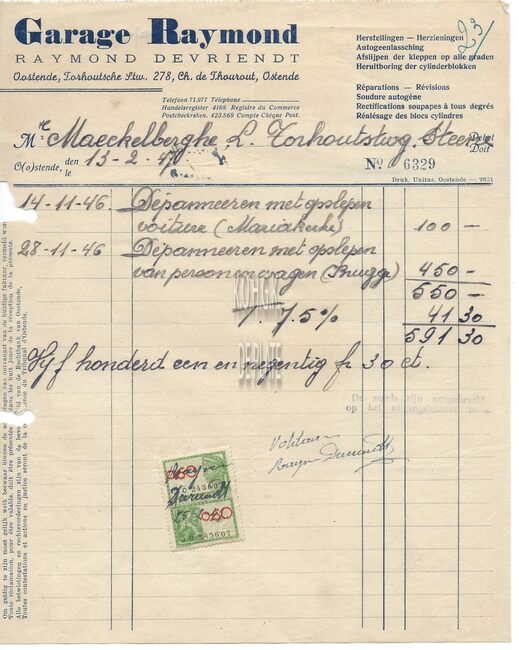 Garage Raymond
RAYMOND DEVRIENDT
Oostende, Torhoutsche Stw. 278, Ch. de Thourout, Ostende
Herstellingen — Herzieningen
Autogeenlassching
Afslijpen der kleppen op alle graden
Heruitboring der cylinderblokken
Réparations — Révisions
Soudure autogène
Rectifications soupapes à tous degrés
Réalésage des blocs cylindres
23
Telefoon 71.977 Téléphone
Handelsregister 4188 Registre du Commerce
Postcheckreken. 423.569 Compte Chèque Post.
Mr Maeckelberghe L. Torhoutstwg. Steene
Debet
Doit
O(o)stende, den
le
13-2-47
No 6329
Druk. Unitas, Oostende — 7851
14-11-46 Dépanneeren met opslepen
voiture (Mariakerke) 100 —
28-11-46 Dépanneeren met opslepen
van personenwagen (Brugge) 450 —
550 —
T. 7.5% 41 30
591 30
Vijf honderd een en negentig fr 30 ct.
KOHAC
DEPUTE
De zegels zijn aangebracht
op het
Voldaan
Devriendt
0.60
243607
0.60
243607
Om geldig te zijn moet gelijk welk bezwaar binnen de dagen van ontvangst van de huidige faktuur, vermeld worden
Toute réclamation, pour être valable, doit être présentée dans les huit jours de la réception de la présente.
Alle betwistingen en rechtsvorderingen zijn van de bevoegdheid van de Rechtbank van Oostende.
Toutes contestations et actions en justice seront de la compétence du Tribunal d'Ostende.